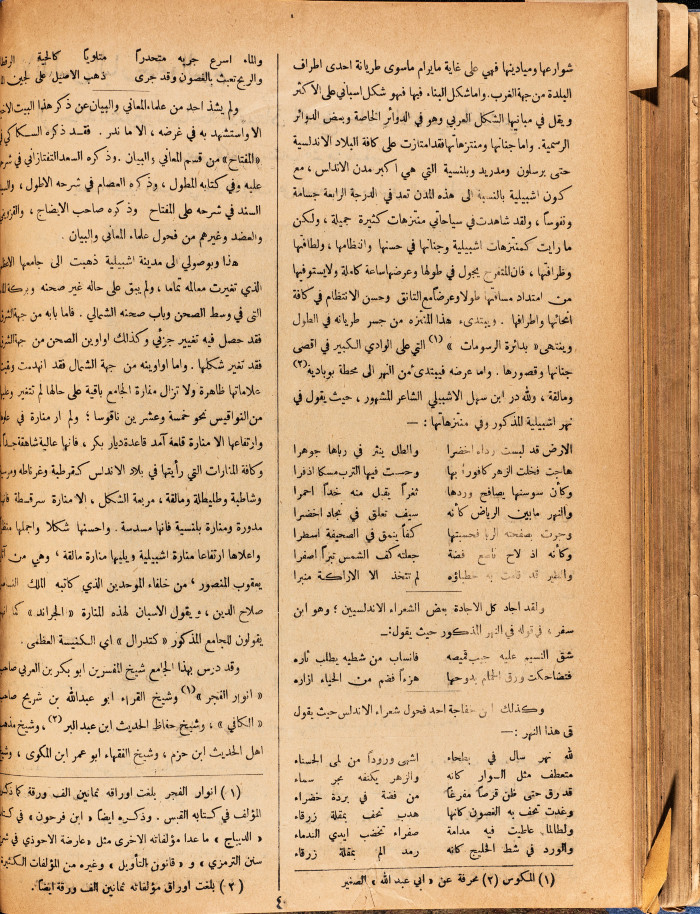 شوارعها وميادينها فهي على غاية مايرام ماسوى طريانة احدى اطراف
البلدة من جهة الغرب. واما شكل البناء فيها فهو شكل اسباني على الأكثر
ويقل في مبانيها الشكل العربي وهو في الدوائر الخاصة وبعض الدوائر
الرسمية. واما جناتها ومنتزهاتها فقد امتازت على كافة البلاد الاندلسية
حتى برسلون ومدريد وبلنسية التي هي اكبر مدن الاندلس ، مع
كون اشبيلية بالنسبة الى هذه المدن تعد في الدرجة الرابعة جسامة
ونفوساً ، ولقد شاهدت في سياحاتي منتزهات كثيرة جميلة ، ولكن
ما رايت كمنتزهات اشبيلية وجناتها في حسنها وانتظامها ، ولطافتها
وظرافتها ، فان المتفرج يجول في طولها وعرضها ساعة كاملة ولايستوفيها
من امتداد مسافتها طولا وعرضاً مع التانق وحسن الانتظام في كافة
انحائها واطرافها . ويبتدىء هذا المنتزه من جسر طريانه في الطول
وينتهى «بدائرة الرسومات » (١) التي على الوادي الكبير في اقصى
جناتها وقصورها . واما عرضه فيبتدىء من النهر الى محطة بوبادية (٢)
ومالقة ، ولله در ابن سهل الاشبيلي الشاعر المشهور ، حيث يقول في
نهر اشبيلية المذكور وفي منتزهاتها : —
الارض قد لبست رداء اخضرا والطل ينثر في رباها جوهرا
هاجت فخلت الزهر كافورا بها وحسبت فيها الترب مسكا اذفرا
وكأن سوسنها يصافح وردها ثغراً يقبل منه خداً احمرا
والنهر مابين الرياض كأنه سيف تعلق في نجاد اخضرا
وجرت بصفحته الربا فحسبتها كفاً ينمق في الصحيفة اسطرا
وكأنه اذ لاح ناصع فضة جعلته كف الشمس تبراً اصفرا
والطير قد قامت به خطباؤه لم تتخذ الا الاراكة منبرا
ولقد اجاد كل الاجادة بعض الشعراء الاندلسيين ؛ وهو ابن
سفر ، في قوله في النهر المذكور حيث يقول:ـــ
شق النسيم عليه جيب قميصه فانساب من شطيه يطلب ثاره
فتضاحكت ورق الحمام بدوحها هزءاً فضم من الحياء ازاره
وكذلك ابن خفاجة احد فحول شعراء الاندلس حيث يقول
في هذا النهر :—
لله نهر سال في بطحاء اشهى وروداً من لمى الحسناء
متعطف مثل السوار كأنه والزهر يكنفه مجر سماء
قد رق حتى ظن قرصاً مفرغاً من فضة في بردة خضراء
وغدت تحف به الغصون كانها هدب تحف بمقلة زرقاء
ولطالما عاطيت فيه مدامة صفراء تخضب ايدي الندماء
والورد في شط الخليج كانه رمد الم بمقلة زرقاء
(١) المكوس (٢) محرفة عن « ابي عبد الله » الصغير
والماء اسرع جريه متحدراً متلوياً كالحية
والريح تعبث بالغصون وقد جرى ذهب الاصيل على لجين
ولم يشذ احد من علماء المعاني والبيان عن ذكر هذا البيت
الا واستشهد به في غرضه ، الا ما ندر . فقد ذكره السكاكي
«المفتاح» من قسم المعاني والبيان . وذكره السعد التفتازاني في
عليه وفي كتابه المطول ، وذكره العصام في شرحه الاطول ،
السند في شرحه على المفتاح وذكره صاحب الايضاح ،
والعضد وغيرهم من فحول علماء المعاني والبيان .
هذا وبوصولي الى مدينة اشبيلية ذهبت الى جامعها
الذي تغيرت معالمه تماما ، ولم يبق على حاله غير صحنه وبركة
التى في وسط الصحن وباب صحنه الشمالي . فاما بابه من جهة
فقد حصل فيه تغيير جزئي وكذلك اواوين الصحن من جهة
فقد تغير شكلها . واما اواوينه من جهة الشمال فقد انهدمت
علاماتها ظاهرة ولا تزال منارة الجامع باقية على حالها لم تتغير
من النواقيس نحو خمسة وعشرين ناقوسا ؛ ولم ار منارة في
وارتفاعها الا منارة قلعة آمد قاعدة ديار بكر ، فانها عالية شاهقة جداً
وكافة المنارات التي رأيتها في بلاد الاندلس كقرطبة وغرناطه
وشاطبة وطليطلة ومالقة ، مربعة الشكل ، الا منارة سرقسطة
مدورة ومنارة بلنسية فانها مسدسة . واحسنها شكلا واجملها
واعلاها ارتفاعا منارة اشبيلية ويليها منارة مالقة ، وهي من
يعقوب المنصور ، من خلفاء الموحدين الذي كاتبه الملك
صلاح الدين ، ويقول الاسبان لهذه المنارة « الجراند » كما
يقولون للجامع المذكور « كتدرال » اي الكنيسة العظمى .
وقد درس بهذا الجامع شيخ المفسرين ابو بكر بن العربي
« انوار الفجر » (١) وشيخ القراء ابو عبدالله بن شريح
« الكافي » ، وشيخ حفاظ الحديث ابن عبد البر (٢) ، وشيخ
اهل الحديث ابن حزم ، وشيخ الفقهاء ابو عمر ابن المكوى ،
(١) انوار الفجر بلغت اوراقه ثمانين الف ورقة كما
المؤلف في كتابه القبس . وذكره ايضاً « ابن فرحون » في
« الديباج » ما عدا مؤلفاته الاخرى مثل « عارضة الاحوذي في
سنن الترمزي » و « قانون التأويل » وغيره من المؤلفات الكثيرة
(٢) بلغت اوراق مؤلفاته ثمانين الف ورقة ايضاً .
٤